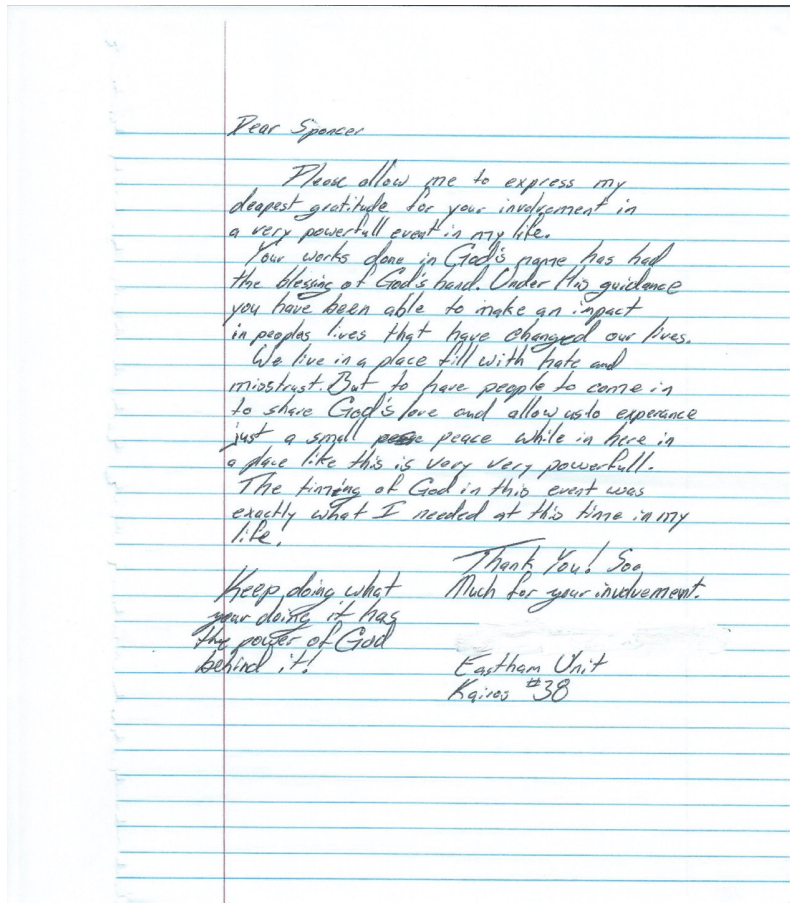 Dear Spencer
Please allow me to express my
deapest gratitude for your involvement in
a very powerfull event in my life.
Your works done in God's name has had
the blessing of God's hand. Under His guidance
you have been able to make an impact
in peoples lives that have changed our lives.
We live in a place fill with hate and
misstrust. But to have people to come in
to share God's love and allow us to experance
just a small peace while in here in
a place like this is very very powerfull.
The timing of God in this event was
exactly what I needed at this time in my
life!
Thank You! Soo
Much for your involvement.
Keep doing what
your doing it has
the power of God
behind it!
Eastham Unit
Kairos #38